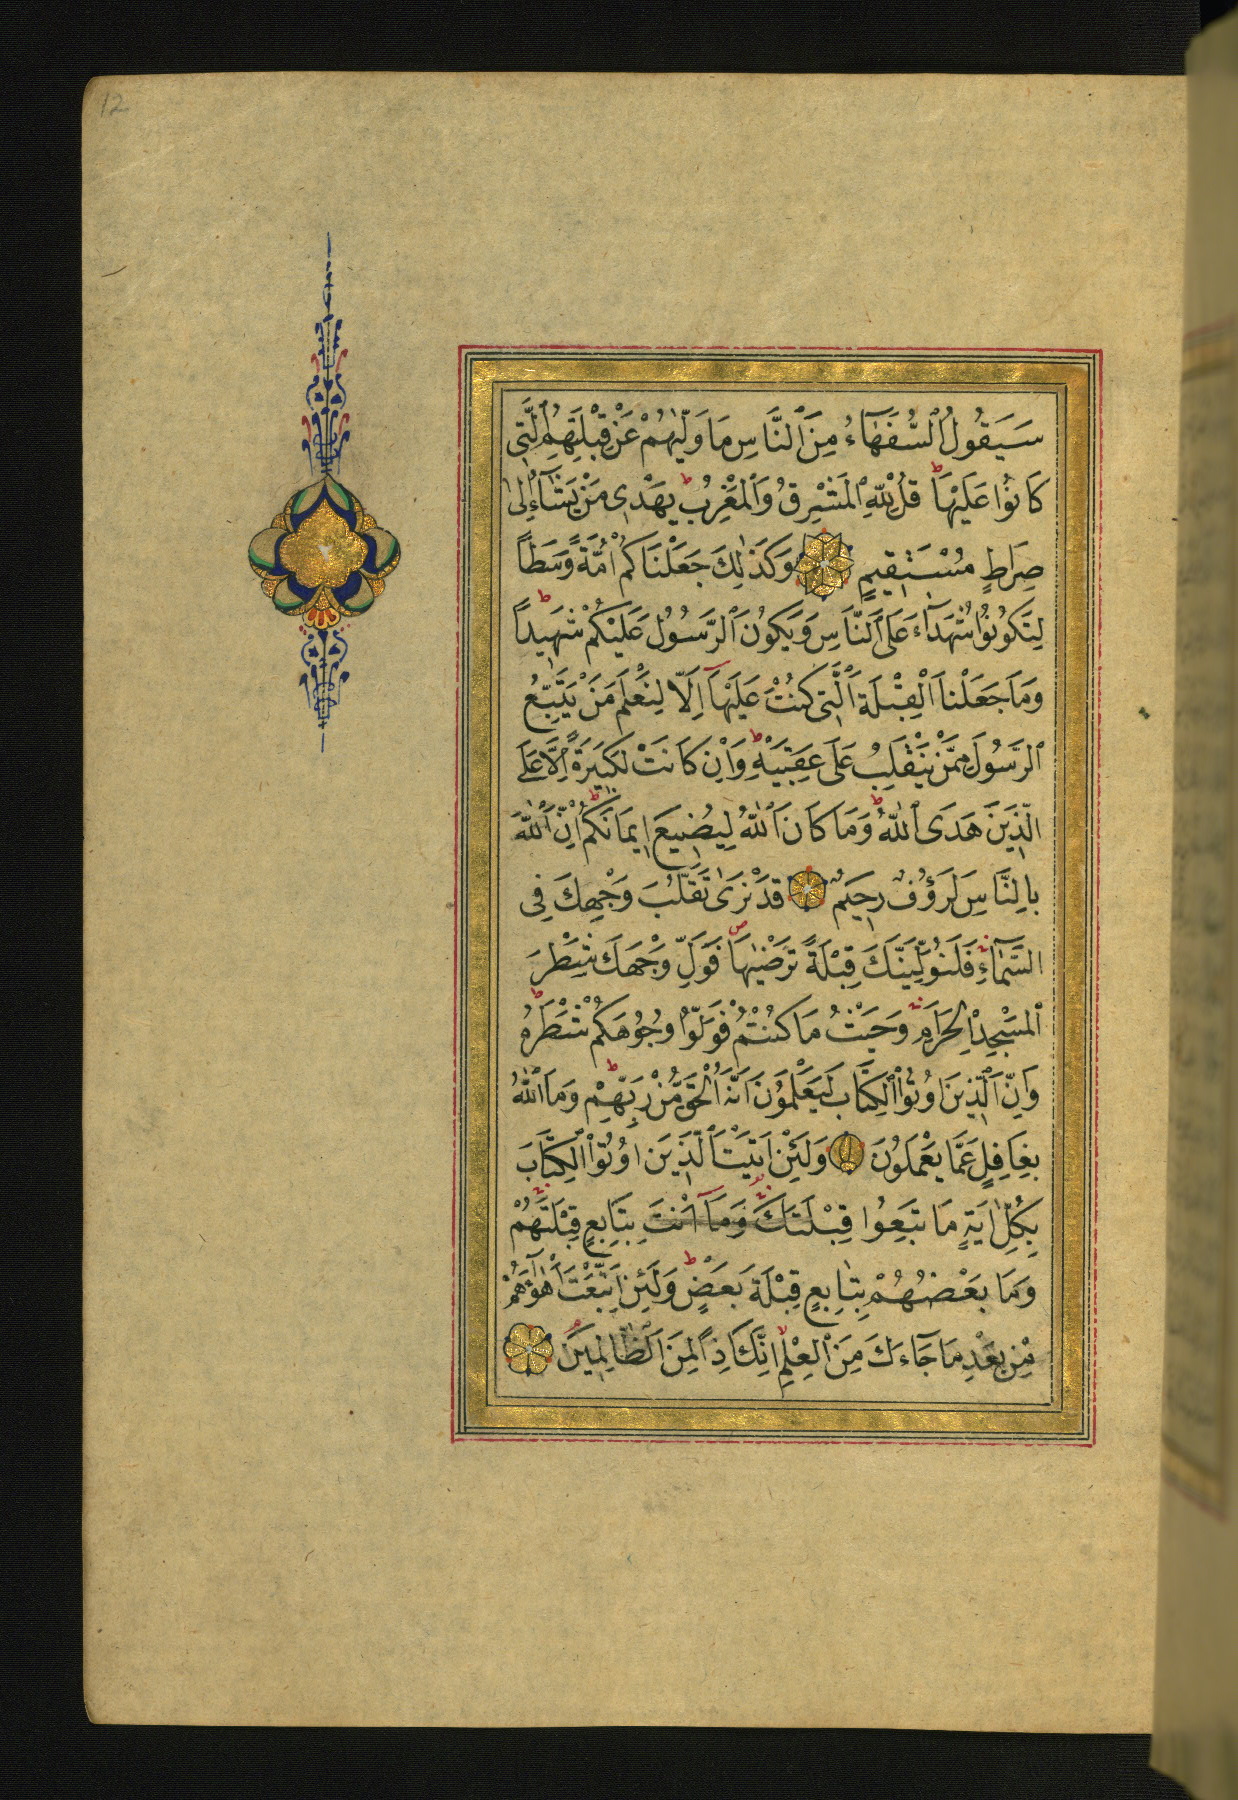 12
سَيَقُولُ ٱلسُّفَهَآءُ مِنَ ٱلنَّاسِ مَا وَلّٰيهُمْ عَنْ قِبْلَتِهِمُ ٱلَّتِى
كَانُوْا عَلَيْهَا ط قُلْ لِلّٰهِ ٱلْمَشْرِقُ وَٱلْمَغْرِبُ ط يَهْدِى مَنْ يَشَآءُ اِلٰى
صِرَاطٍ مُسْتَقِيمٍ وَكَذٰلِكَ جَعَلْنَاكُمْ اُمَّةً وَسَطًا
لِتَكُونُوْا شُهَدَآءَ عَلَى ٱلنَّاسِ وَيَكُونَ ٱلرَّسُولُ عَلَيْكُمْ شَهِيدًا ط
وَمَا جَعَلْنَا ٱلْقِبْلَةَ ٱلَّتِى كُنْتَ عَلَيْهَآ اِلَّا لِنَعْلَمَ مَنْ يَتَّبِعُ
ٱلرَّسُولَ مِمَّنْ يَنْقَلِبُ عَلَى عَقِبَيْهِ ط وَاِنْ كَانَتْ لَكَبِيرَةً اِلَّا عَلَى
ٱلَّذِينَ هَدَى ٱللّٰهُ ط وَمَا كَانَ ٱللّٰهُ لِيُضِيعَ اِيمَانَكُمْ ط اِنَّ ٱللّٰهَ
بِالنَّاسِ لَرَؤُفٌ رَحِيمٌ قَدْ نَرٰى تَقَلُّبَ وَجْهِكَ فِى
السَّمَآءِ فَلَنُوَلِّيَنَّكَ قِبْلَةً تَرْضٰيهَا ص فَوَلِّ وَجْهَكَ شَطْرَ
ٱلْمَسْجِدِ ٱلْحَرَامِ وَحَيْثُ مَا كُنْتُمْ فَوَلُّوْا وُجُوهَكُمْ شَطْرَهُ ط
وَاِنَّ ٱلَّذِينَ اُوتُوْا ٱلْكِتَابَ لَيَعْلَمُونَ اَنَّهُ ٱلْحَقُّ مِنْ رَبِّهِمْ ط وَمَا ٱللّٰهُ
بِغَافِلٍ عَمَّا يَعْمَلُونَ وَلَئِنْ اَتَيْتَ ٱلَّذِينَ اُوتُوْا ٱلْكِتَابَ
بِكُلِّ اٰيَةٍ مَا تَبِعُوا قِبْلَتَكَ وَمَآ اَنْتَ بِتَابِعٍ قِبْلَتَهُمْ
وَمَا بَعْضُهُمْ بِتَابِعٍ قِبْلَةَ بَعْضٍ ط وَلَئِنِ اتَّبَعْتَ اَهْوَآءَهُمْ
مِنْ بَعْدِ مَا جَآءَكَ مِنَ ٱلْعِلْمِ اِنَّكَ اِذًا لَمِنَ ٱلظَّالِمِينَ